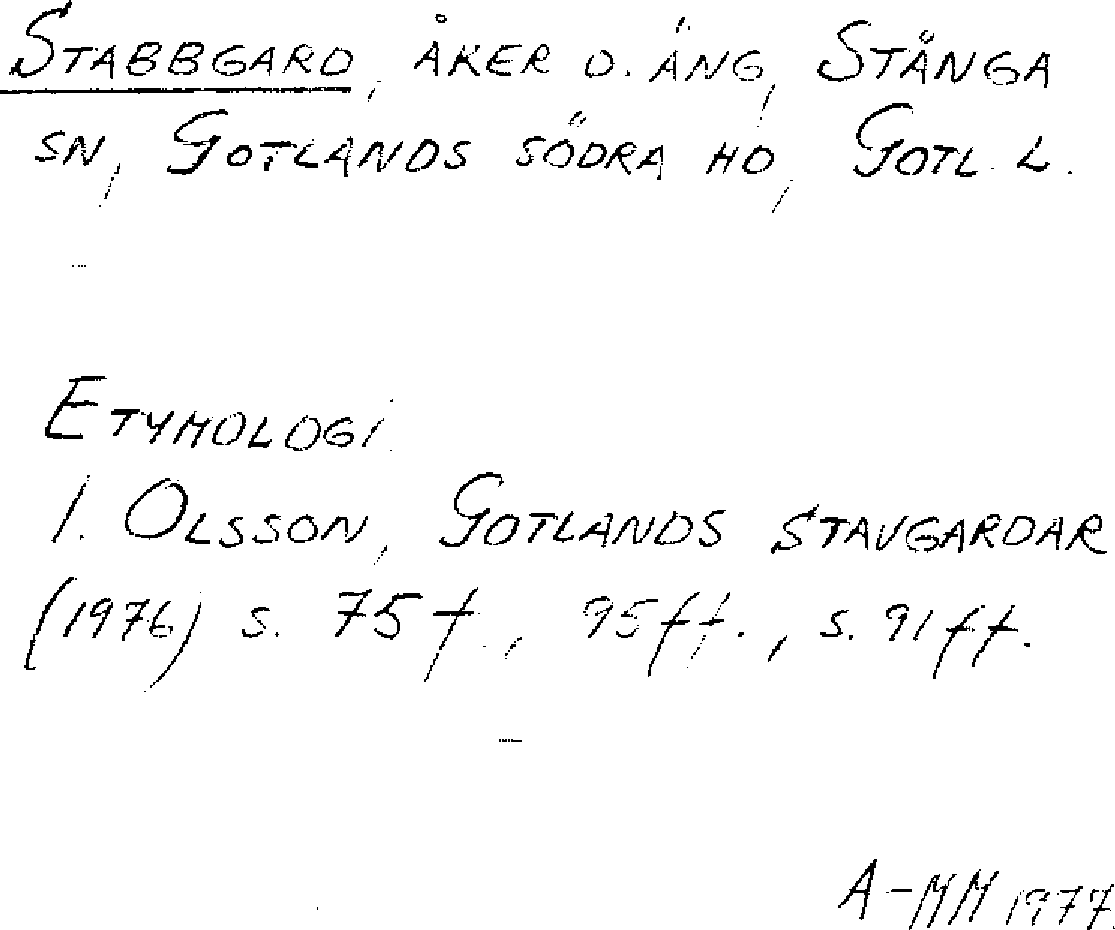 STABBGARD, ÅKER O. ÄNG, STÅNGA
SN, GOTLANDS SÖDRA HD, GOTL. L.
ETYMOLOGI.
I. OLSSON, GOTLANDS STAVGARDAR
(1976) s. 75 f., 95 ff., s. 91 ff.
A-MM 1977.